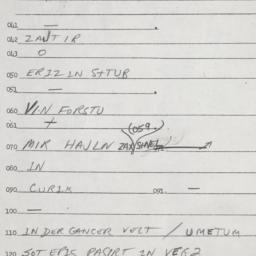 041 —
042 ZANT IR
043 O
050 ERIZ IN STTUR
051 —
060 VIN FORSTU
061 +
(059.)
070 MIR HAULN ZAX
080 IN
090 CURIK 091. —
100 —
110 IN DER GANCER VELT / UMETUM
120 SOT EPIS PASIRT IN VEG2